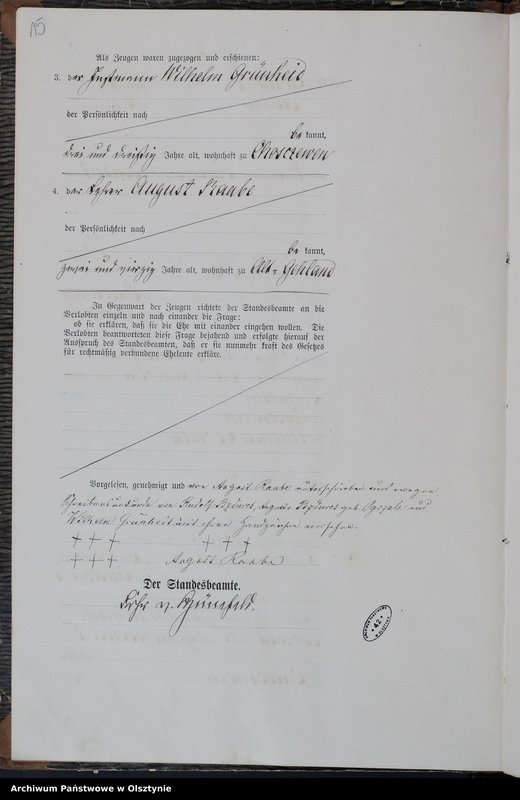 15
Als Zeugen waren zugezogen und erschienen:
3. der Instmann Wilhelm Grünheid
der Persönlichkeit nach
be kannt,
drei und dreißig Jahre alt, wohnhaft zu Choszewen
4. der Lehrer August Raabe
der Persönlichkeit nach
be kannt,
zwei und vierzig Jahre alt, wohnhaft zu Alt-Gehland
In Gegenwart der Zeugen richtete der Standesbeamte an die
Verlobten einzeln und nach einander die Frage:
ob sie erklären, daß sie die Ehe mit einander eingehen wollen. Die
Verlobten beantworteten diese Frage bejahend und erfolgte hierauf der
Ausspruch des Standesbeamten, daß er sie nunmehr kraft des Gesetzes
für rechtmäßig verbundene Eheleute erkläre.
Vorgelesen, genehmigt und von August Raabe unterschrieben und wegen
Schreibensunkunde von Rudolf Auguste geb. und
Wilhelm Grünheit mit ihren Handzeichen versehen.
+ + + + + +
+ + + August Raabe
Der Standesbeamte.
42
Archiwum Państwowe w Olsztynie